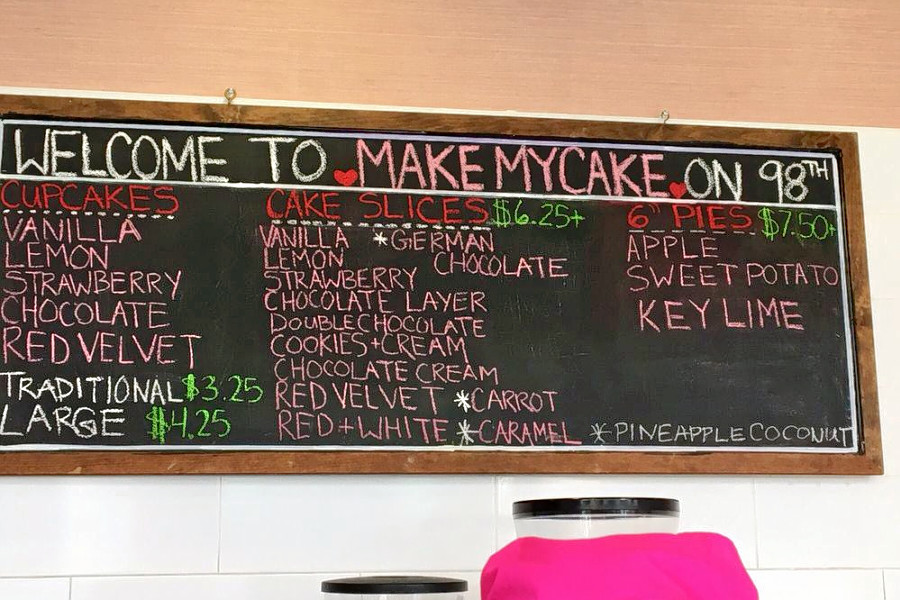 WELCOME TO MAKE MY CAKE ON 98TH
CUPCAKES
VANILLA
LEMON
STRAWBERRY
CHOCOLATE
RED VELVET
TRADITIONAL $3.25
LARGE $4.25
CAKE SLICES $6.25+
VANILLA *GERMAN
LEMON CHOCOLATE
STRAWBERRY
CHOCOLATE LAYER
DOUBLE CHOCOLATE
COOKIES+CREAM
CHOCOLATE CREAM
RED VELVET *CARROT
RED+WHITE *CARAMEL *PINEAPPLE COCONUT
6" PIES $7.50+
APPLE
SWEET POTATO
KEY LIME